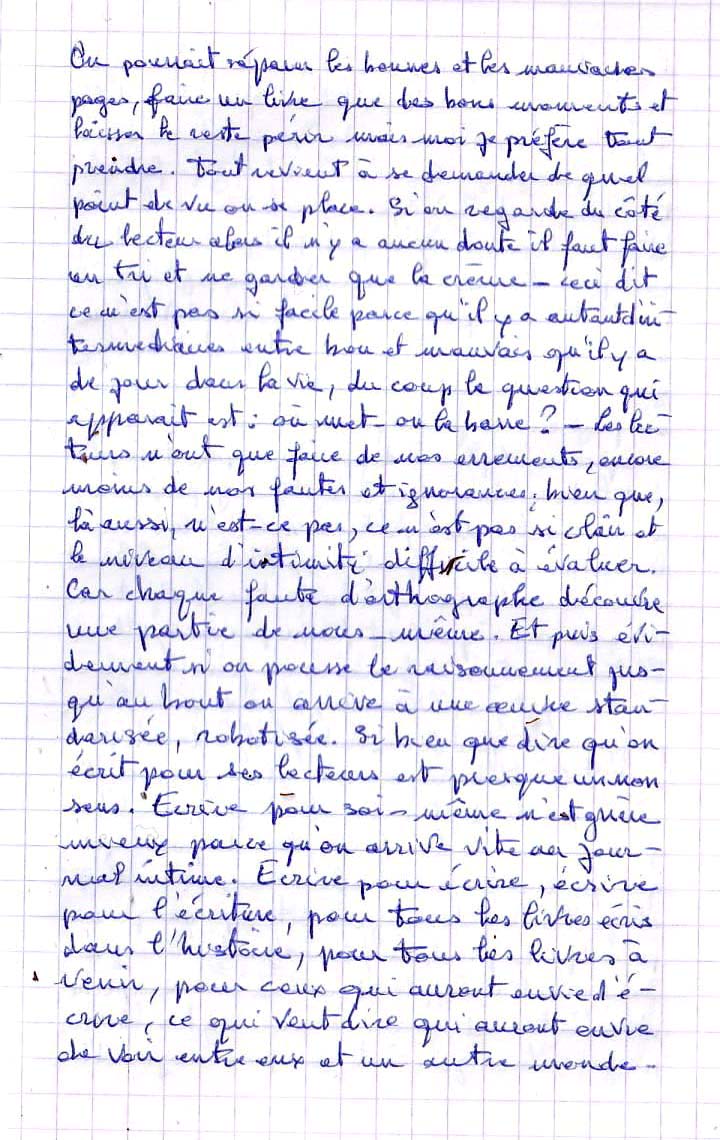 On pourrait séparer les bonnes et les mauvaises
pages, faire un livre que des bons moments et
laisser le reste périr mais moi je préfère tout
prendre. Tout revient à se demander de quel
point de vu on se place. Si on regarde du côté
du lecteur alors il n'y a aucun doute il faut faire
un tri et ne garder que la crème – ceci dit
ce n'est pas si facile parce qu'il y a autant d'in-
termediaires entre bon et mauvais qu'il y a
de jour dans la vie, du coup la question qui
apparait est : où met-on la barre ? – Les lec-
teurs n'ont que faire de nos errements, encore
moins de nos fautes et ignorances, bien que,
là aussi, n'est-ce pas, ce n'est pas si clair et
le niveau d'intimité difficile à évaluer.
Car chaque faute d'orthographe découvre
une partie de nous-même. Et puis évi-
demment si on pousse le raisonnement jus-
qu'au bout on arrive à une œuvre stan-
darisée, robotisée. Si bien que dire qu'on
écrit pour ses lecteurs est presque un non
sens. Ecrire pour soi-même n'est guère
mieux parce qu'on arrive vite au jour-
nal intime. Ecrire pour écrire, écrire
pour l'écriture, pour tous les livres écris
dans l'histoire, pour tous les livres à
venir, pour ceux qui auront envie d'é-
crire, ce qui veut dire qui auront envie
de voir entre eux et un autre monde –